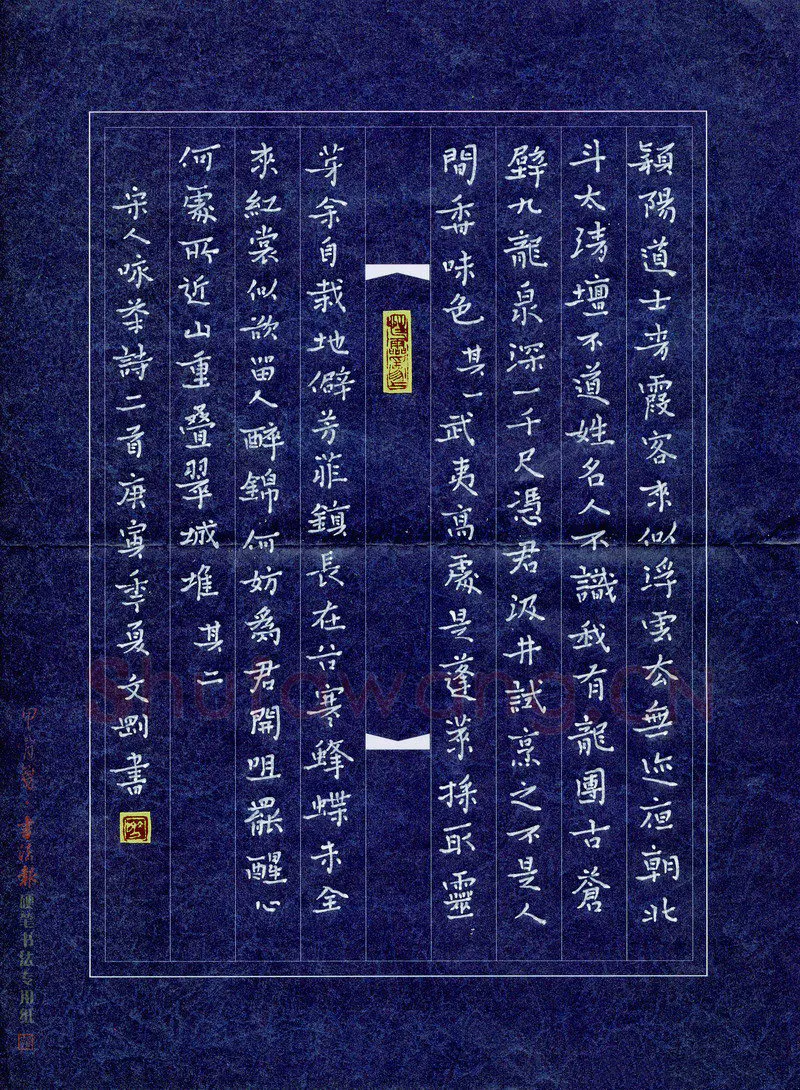 穎陽道士青霞客来似浮雲去無迹夜朝北
斗太清壇不道姓名人不識我有龍團古蒼
璧九龍泉深一千尺憑君汲井試烹之不是人
間香味色 其一 武夷高處是蓬萊採取靈
芽余自栽地僻芳菲鎮長在谷寒蜂蝶未全
来紅裳似欲留人醉錦
何妨為君開咀罷醒心
何處所近山重叠翠城堆 其二
宋人咏茶詩二首庚寅季夏文剛書
書法報硬笔书法专用纸
Shufawang.CN